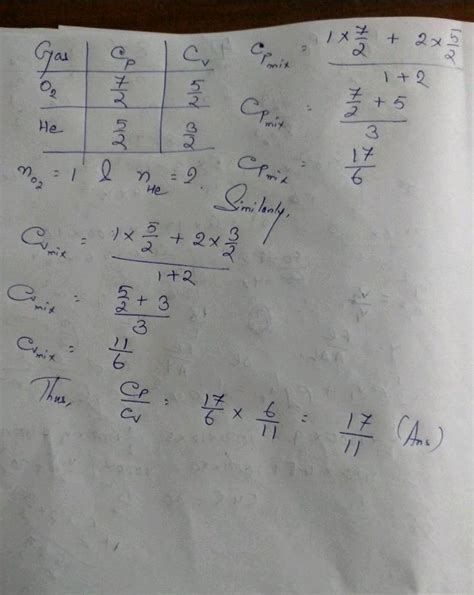 Gas | Cp | Cv
O₂ | 7/2 | 5/2
He | 5/2 | 3/2
n_O₂ = 1 & n_He = 2.
Cp_mix = (1 × 7/2 + 2 × 5/2) / (1+2)
Cp_mix = (7/2 + 5) / 3
Cp_mix = 17/6
Similarly,
Cv_mix = (1 × 5/2 + 2 × 3/2) / (1+2)
Cv_mix = (5/2 + 3) / 3
Cv_mix = 11/6
Thus, Cp/Cv = 17/6 × 6/11 = 17/11 (Ans)